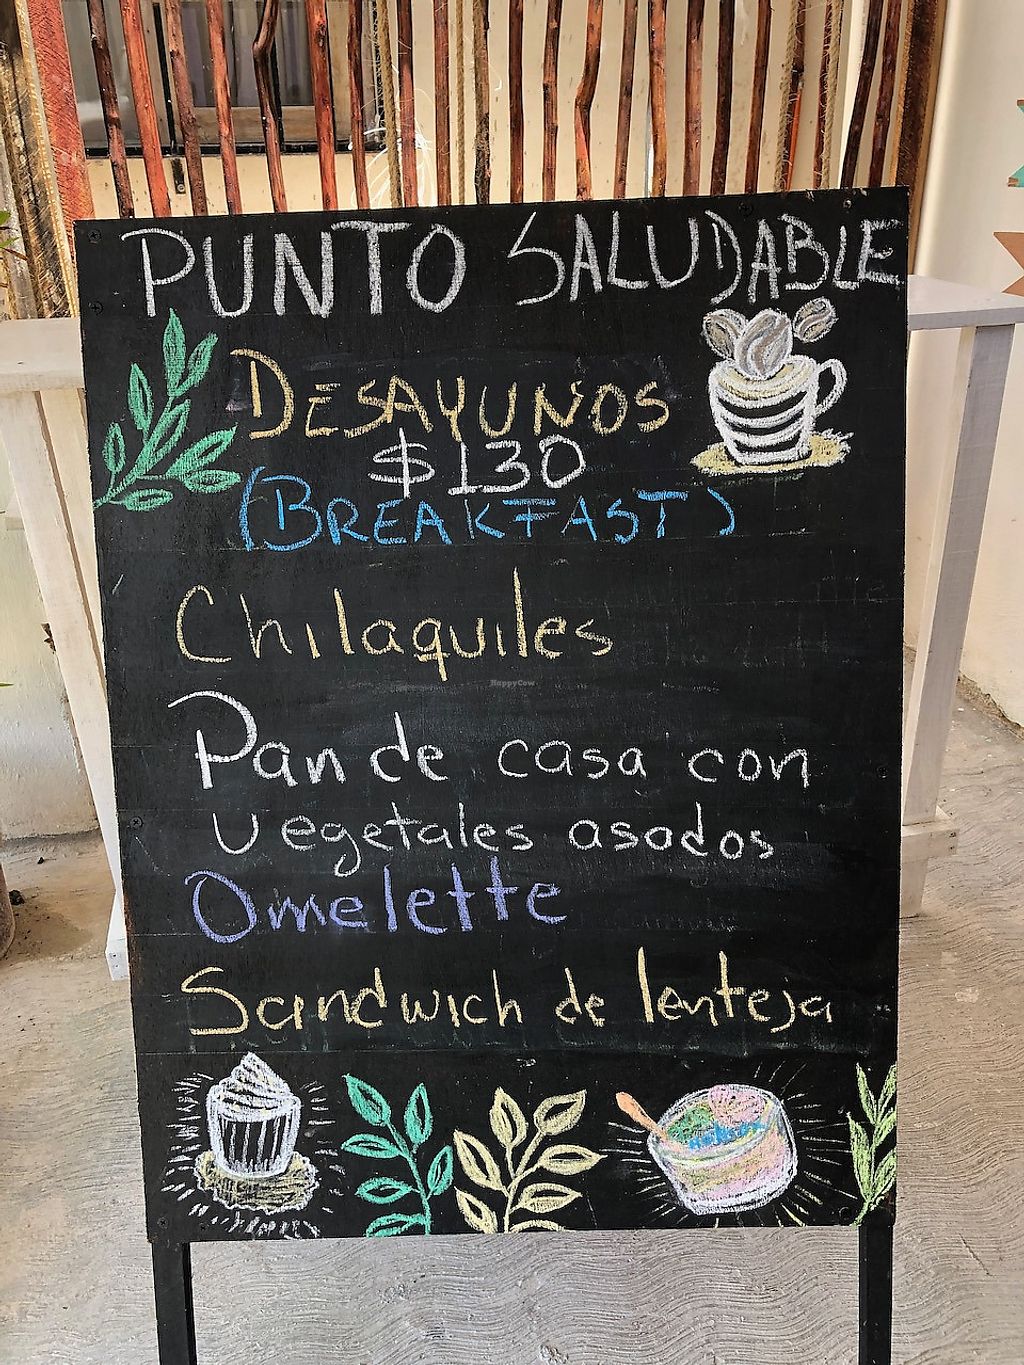 PUNTO SALUDABLE
DESAYUNOS
$130
(BREAKFAST)
Chilaquiles
HappyCow
Pan de casa con
vegetales asados
Omelette
Sandwich de lenteja